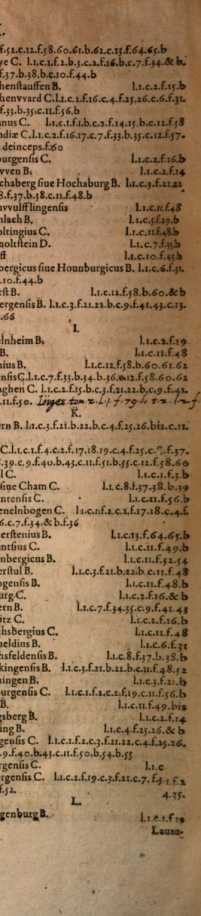 f.51.c.12.f.58.60.61.b.62.c.13.f.64.65.b
ye C. l.1.c.1.f.2.b.3.c.2.f.16.b.c.7.f.54.& b.
f.37.b.38.b.c.10.f.44.b
henstauffen B. l.1.c.2.f.15.b
henvvard C. l.1.c.2.f.16.c.4.f.25.26.c.6.f.31.
f.33.b.35.c.11.f.56.b
anus C. l.1.c.1.f.1.b.c.2.f.14.15.b.c.12.f.58
ndiæ C. l.1.c.2.f.16.17.c.7.f.33.b.35.c.12.f.57.
deinceps.f.60
urgensis C. l.1.c.2.f.16.b
vven B. l.1.c.2.f.14
chaberg siue Hochaburg B. l.1.c.3.f.21.22
8.f.37.b.38.c.11.f.48.b
uvvulfflingensis l.1.c.11.f.48
nlach B. l.1.c.5.f.29.b
oltingius C. l.1.c.11.f.48.b
noltstein D. l.1.c.7.f.35.b
ff l.1.c.10.f.45.b
bergicus siue Hounburgicus B. l.1.c.6.f.31.
.10.f.44.b
rst B. l.1.c.12.f.58.b.60.& b
ergensis B. l.1.c.3.f.21.22.b.c.9.f.41.43.c.13.
.66
I.
elnheim B. l.1.c.2.f.19
B. l.1.c.11.f.48
nius B. l.1.c.12.f.58.b.60.61.62
ensis C. l.1.c.7.f.33.b.34.b.36.c.12.f.58.60.62
nghen C. l.1.c.2.f.15.b.c.3.f.21.22.b.c.9.f.42.
.11.f.50.
K.
rn B. l.1.c.3.f.21.b.22.b.c.4.f.25.26.bis.c.12.
C. l.1.c.1.f.4.c.2.f.17.18.19.c.4.f.25.c.7.f.37.
.39.c.9.f.40.b.43.c.11.f.51.b.55.c.12.f.58.60
l C. l.1.c.1.f.3.b
siue Cham C. l.1.c.8.f.37.38.b.39
ntensis C. l.1.c.11.f.56.b
enelnbogen C. l.1.c.1.f.2.c.2.f.17.18.c.4.f.
6.c.7.f.34.& b.f.36
erstenius B. l.1.c.13.f.64.65.b
ntsius C. l.1.c.11.f.49.b
nbergicus B. l.1.c.11.f.52.54
erstul B. l.1.c.3.f.21.b.22.b.c.11.f.48
ogensis B. l.1.c.11.f.48.b
urg C. l.1.c.2.f.16.& b
ern B. l.1.c.7.f.34.35.c.9.f.42.43
itz C. l.1.c.2.f.16.b
chsbergius C. l.1.c.11.f.48
neldius B. l.1.c.6.f.31
hsfeldensis B. l.1.c.8.f.37.b.38.b
kingensis B. l.1.c.3.f.21.b.22.b.c.11.f.48.52
ningen B. l.1.c.3.f.21.b
urgensis C. l.1.c.1.f.2.c.2.f.19.c.11.f.56.b
B. l.1.c.11.f.49.bis
gsberg B. l.1.c.2.f.14
ing B. l.1.c.4.f.25.26.& b
gensis C. l.1.c.1.f.2.c.3.f.21.22.c.4.f.25.26.
.9.f.40.b.43.c.11.f.50.b.54.b.55
rgensis C. l.1.c
rgensis C. l.1.c.2.f.19.c.3.f.21.c.7.
f.52. 4.25.
L.
genburg B. l.1.c.1.f.19
Lauzu-